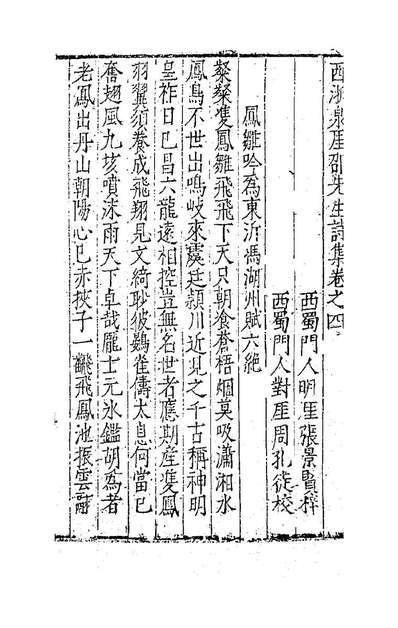 西浙泉厓邵先生詩集卷之四
西蜀門人明厓張景賢梓
西蜀門人對厓周孔徒校
鳳雛吟為東沂馮湖州賦六絶
粲粲隻鳳雛飛飛下天只朝飡蒼梧烟莫吸瀟湘水
鳳鳥不世出鳴岐來虞廷頴川近見之千古稱神明
皇祚日已昌六龍遠相控豈無名世者應期産隻鳳
羽翼須養成飛翔見文綺耿彼鷃雀儔太息何當已
奮翅風九垓噴沫雨天下卓哉龐士元氷鑑胡為者
老鳳出丹山朝陽心已赤挾子一飛鳳池振雲翮